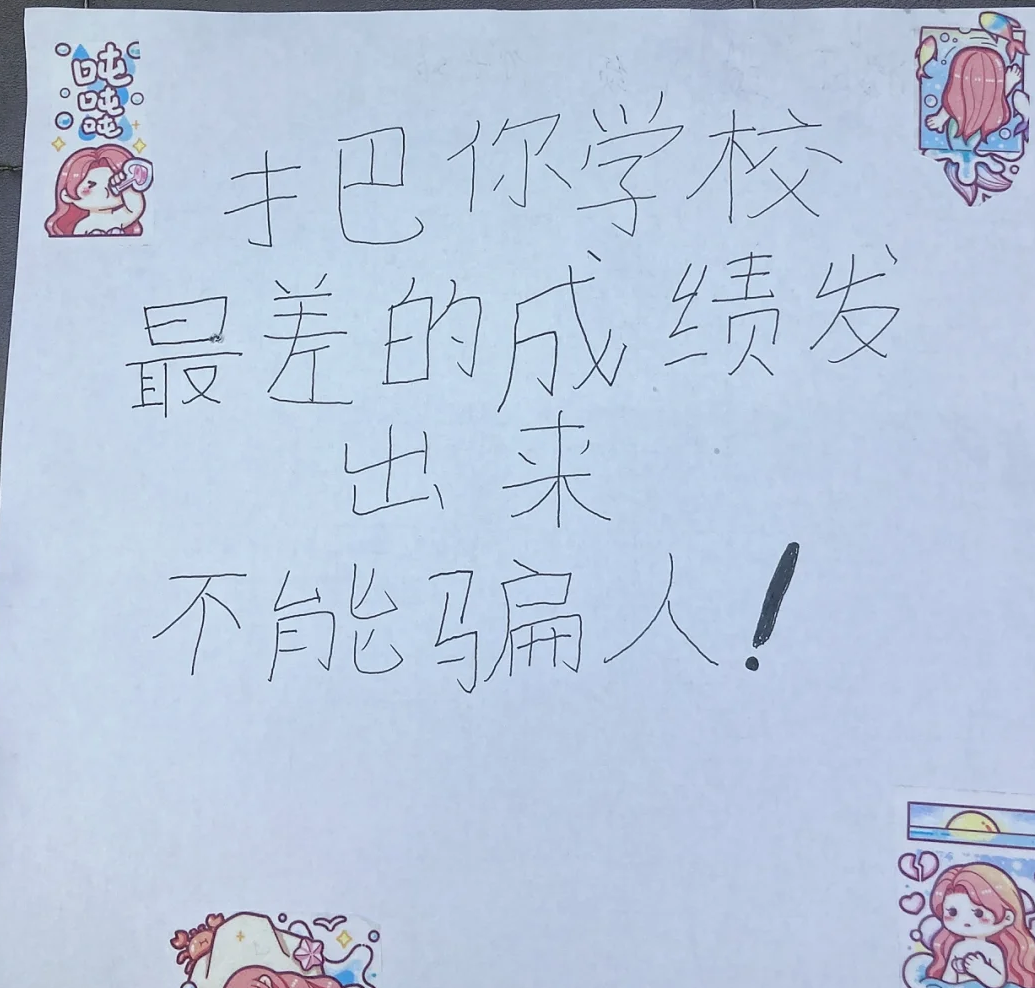 吨
吨
吨
把你学校
最差的成绩发
出来
不能骗人!